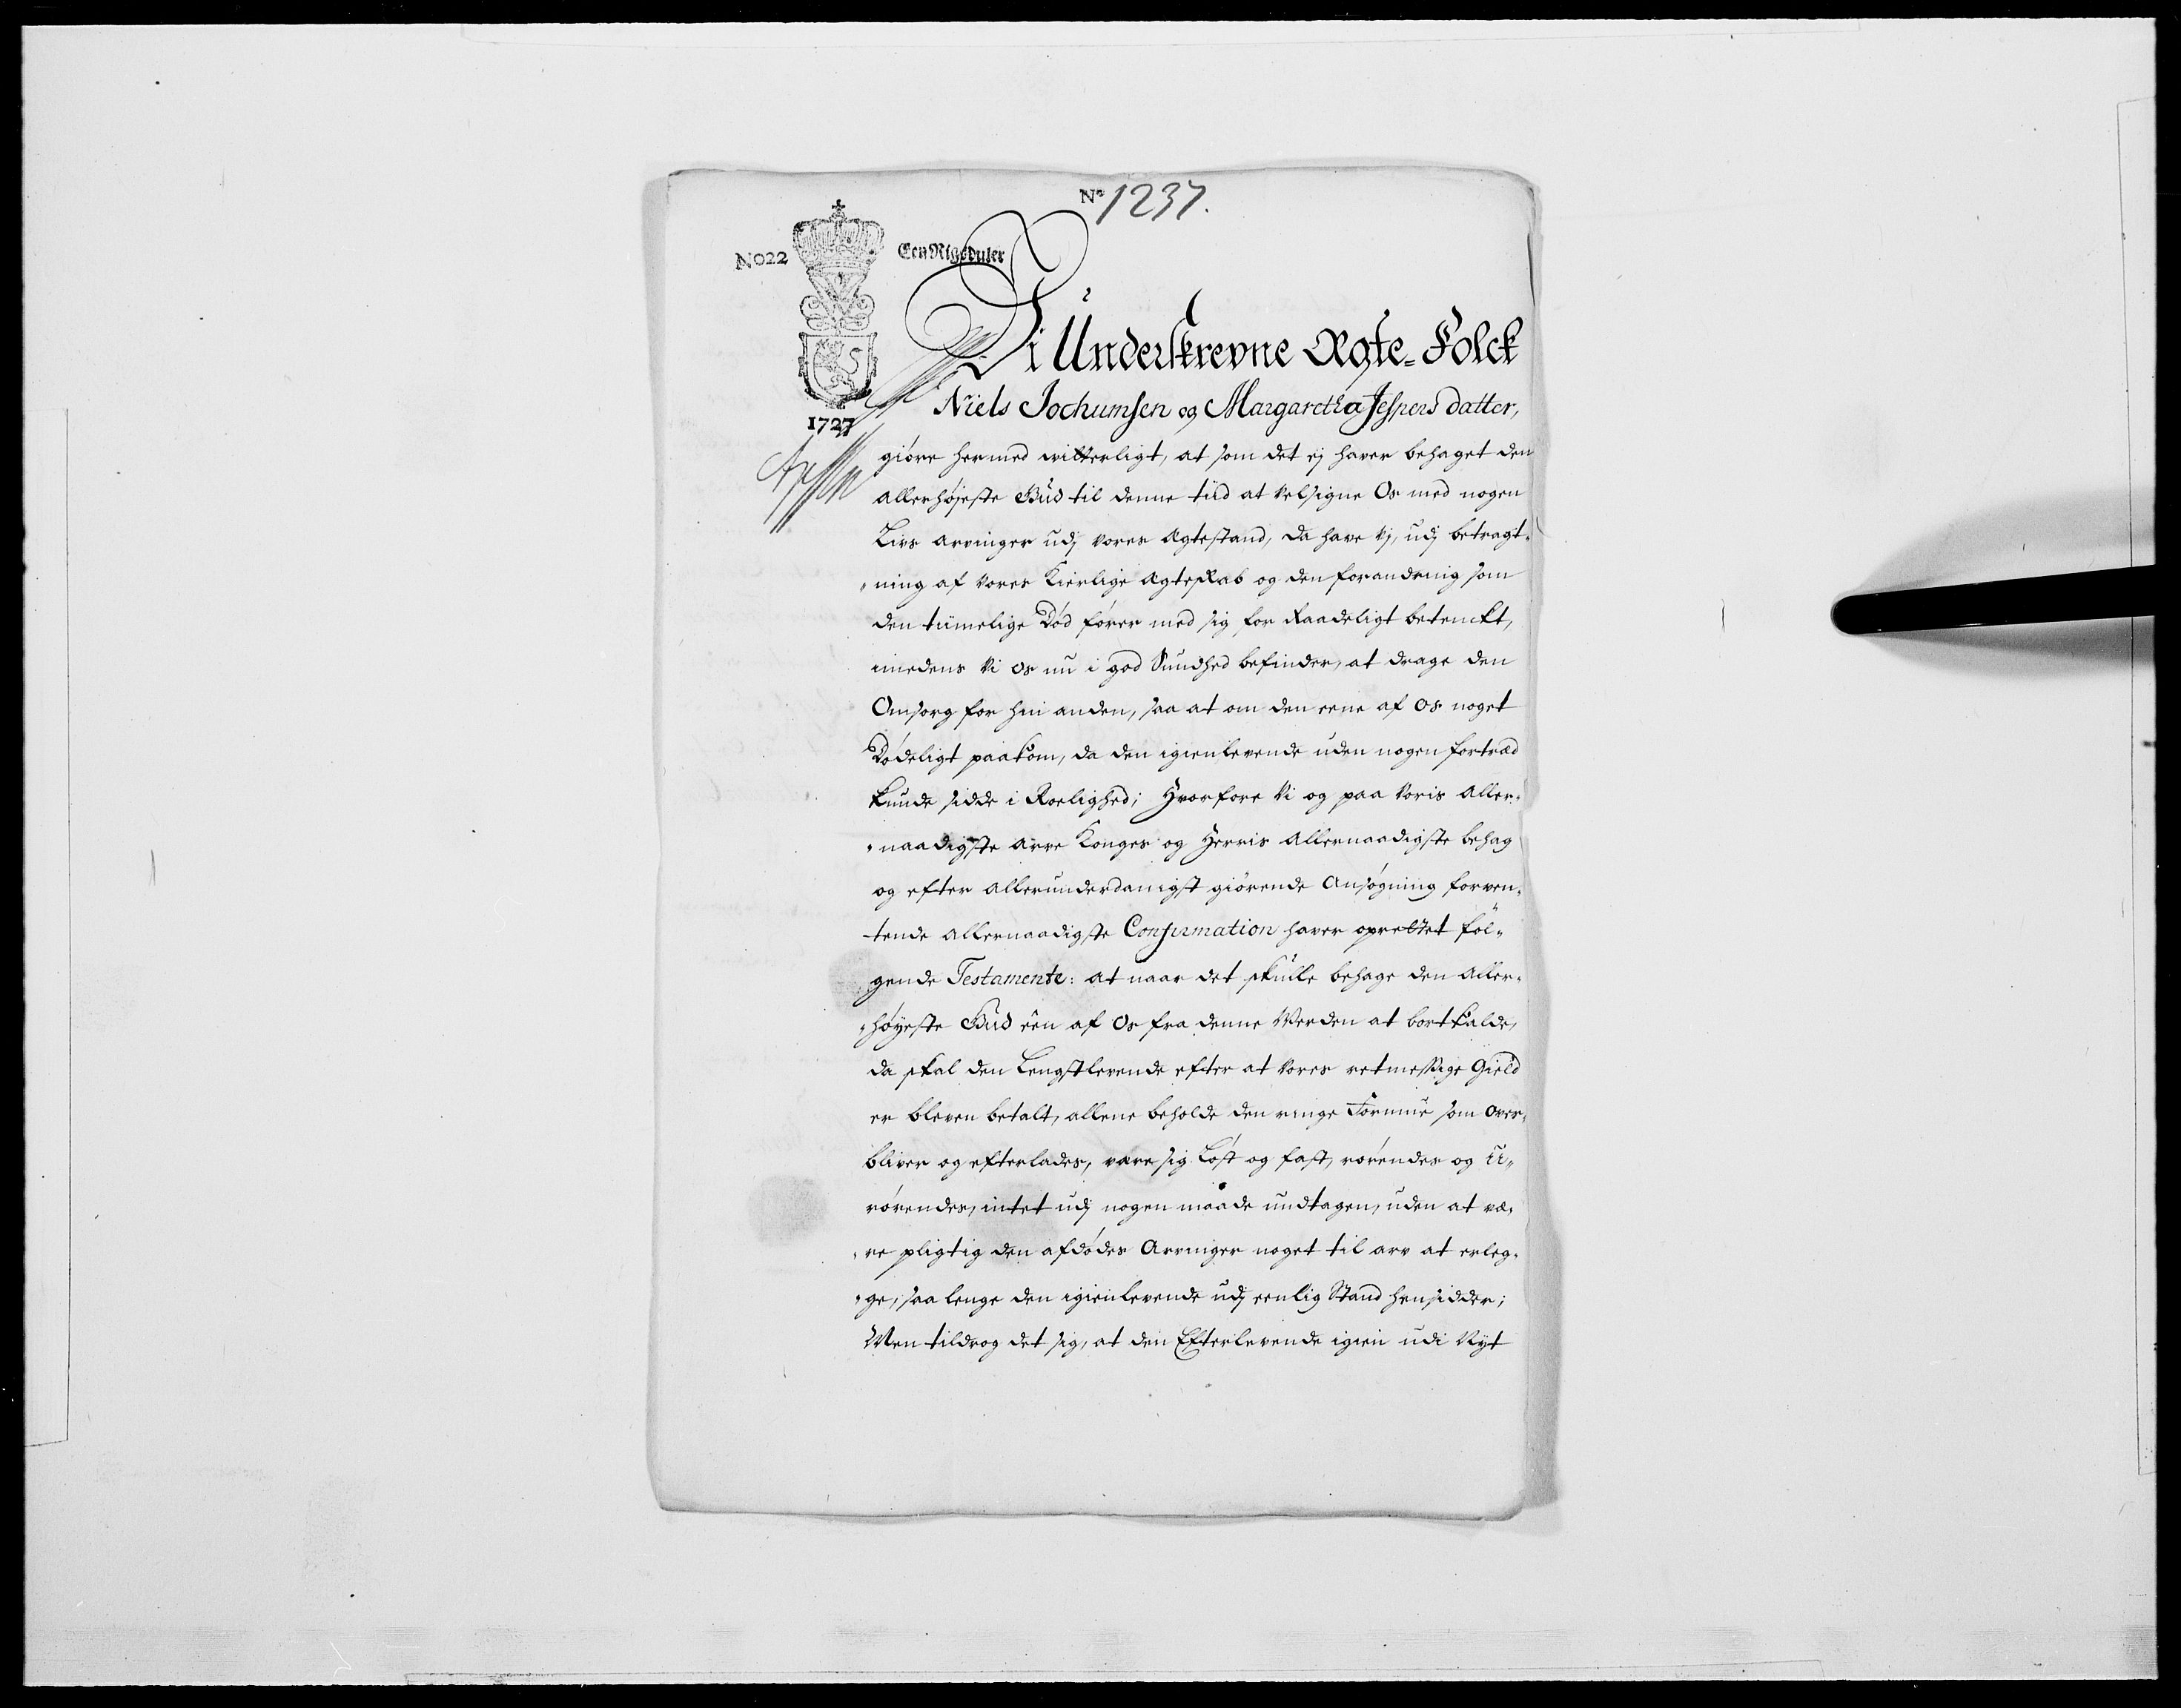 No 1237.
No 22
Een Rigsdaler
1727
Vi Underskrevne Ægte-Folck
Niels Jochumsen og Margaretha Jespers datter,
giöre hermed witterligt, at som det ej haver behaget den
allerhøjeste Gud til denne tiid at velsigne Os med nogen
Livs arvinger udj vores Ægtestand, da have Vj, udj betragt-
-ning af vores Kierlige Ægteskab og den forandring som
den tiimelige Död förer med sig for Raadeligt betenckt,
imedens Vi os nu i god Sundhed befinder, at drage den
Omsorg for hin anden, saa at om den eene af os noget
Dödeligt paakom, da den igienlevende uden nogen fortræd
kunde sidde i Roelighed; Hvorfore Vi og paa Voris Aller-
-naadigste Arve Konges og Herris Allernaadigste behag
og efter allerunderdanigst giörende Ansögning forven-
tende allernaadigste Confirmation haver oprettet föl-
gende Testamente: at naar det skulle behage den Aller-
-höyeste Gud een af Os fra denne Verden at bortkalde,
da skal den Lengstlevende efter at Vores retmessige Gield
er bleven betalt, allene beholde den ringe Formue som over-
bliver og efterlades, være sig Löst og fast, rörendes og U-
rörendes, intet udj nogen maade undtagen, uden at væ-
-re pligtig den afdödes Arvinger noget til arv at erleg-
-ge, saa lenge den igienlevende udj eenlig Stand hensidder;
Men tildrog det sig, at den Efterlevende igien udi Nyt